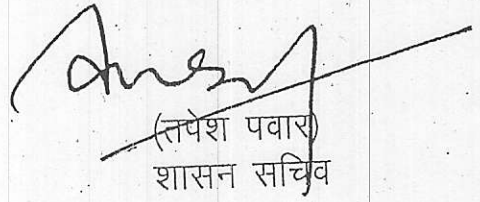 (तपेश पवार)
शासन सचिव